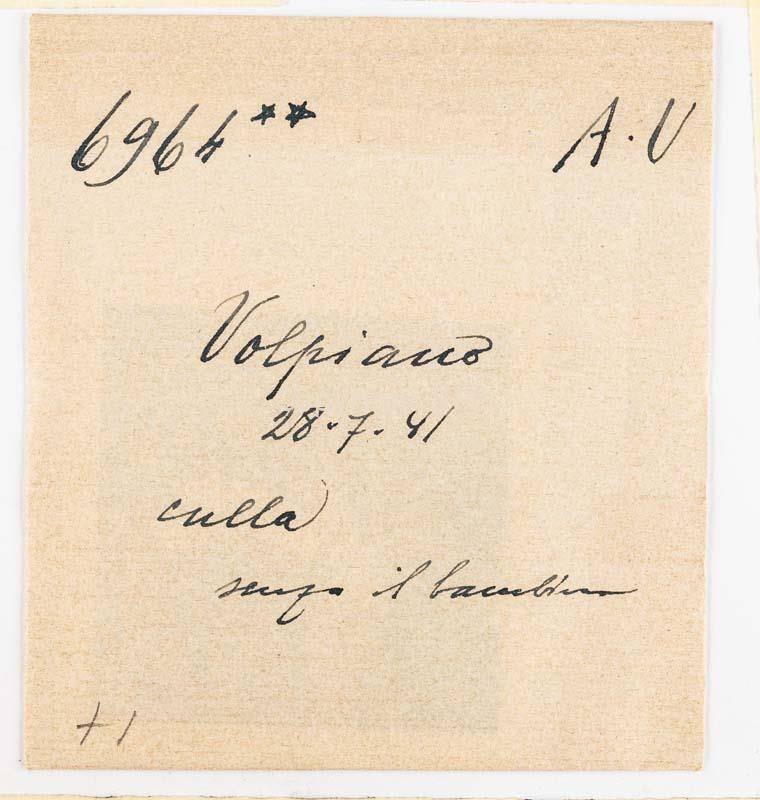 6964** A.V
Volpiano
28-7-41
culla
senza il bambino
+1